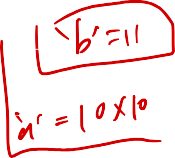 'b' = 11
'a' = 10 x 10